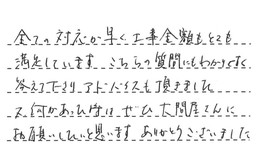 全ての対応が早く工事金額もとても
満足しています こちらの質問にもわかりやすく
答えて下さりアドバイスも頂きました
又何かあった時は ぜひ 大問屋さんに
お願いしたいと思います ありがとうございました